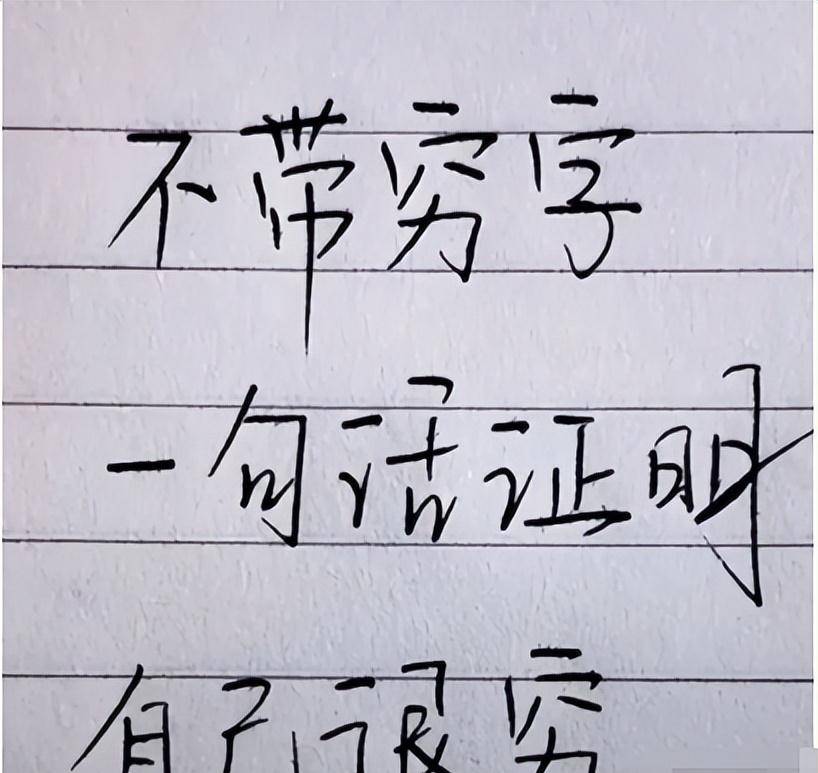 不带穷字
一句话证明
自己很穷